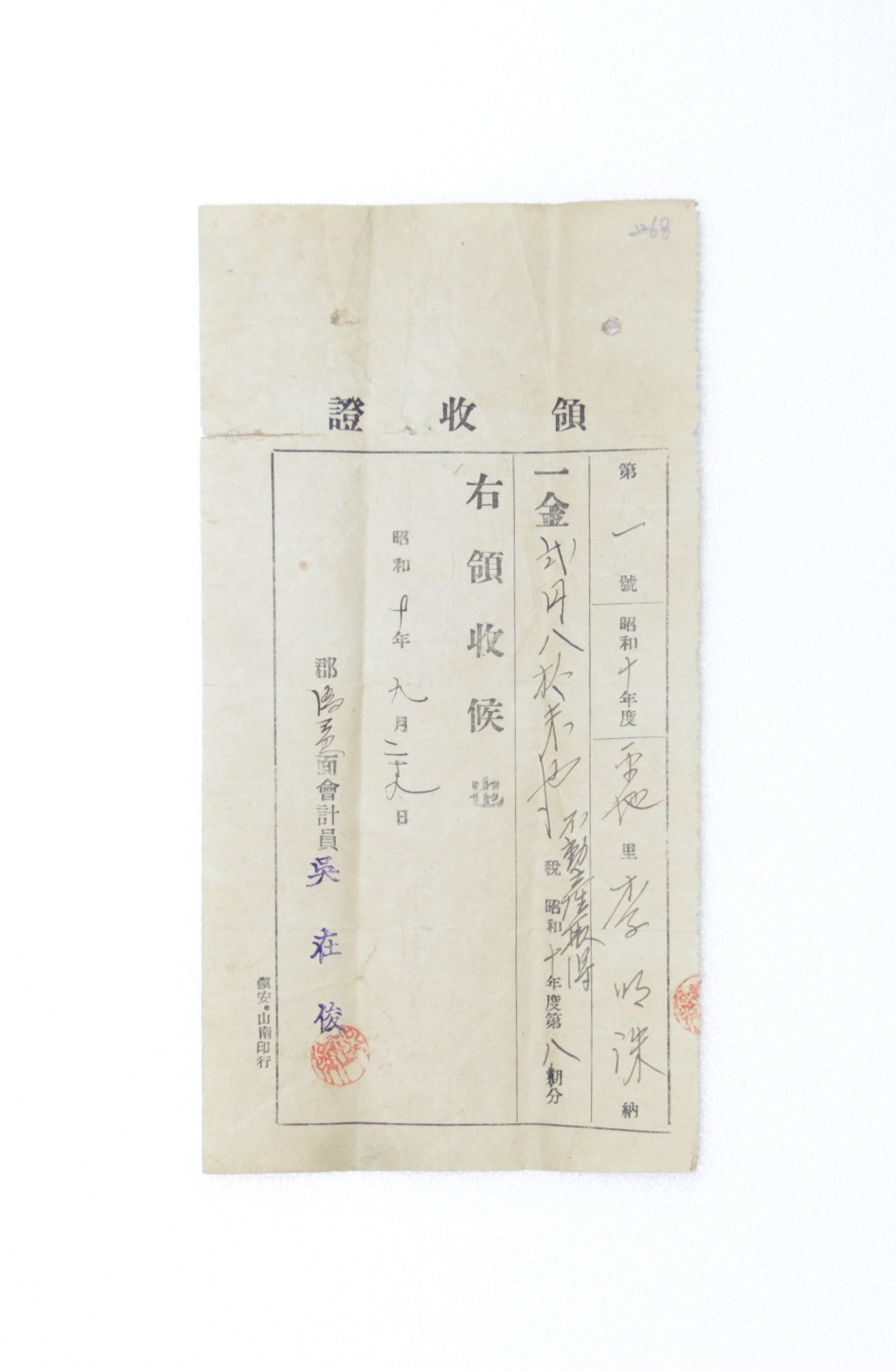 68
領收證
第一號 昭和十年度 平地里 李明洙 納
一金貳円八拾未也
不動産取得
稅 昭和十年度第八期分
右領收候也
昭和十年九月二十九日
郡 面會計員 吳在俊
鎭安·山南印行